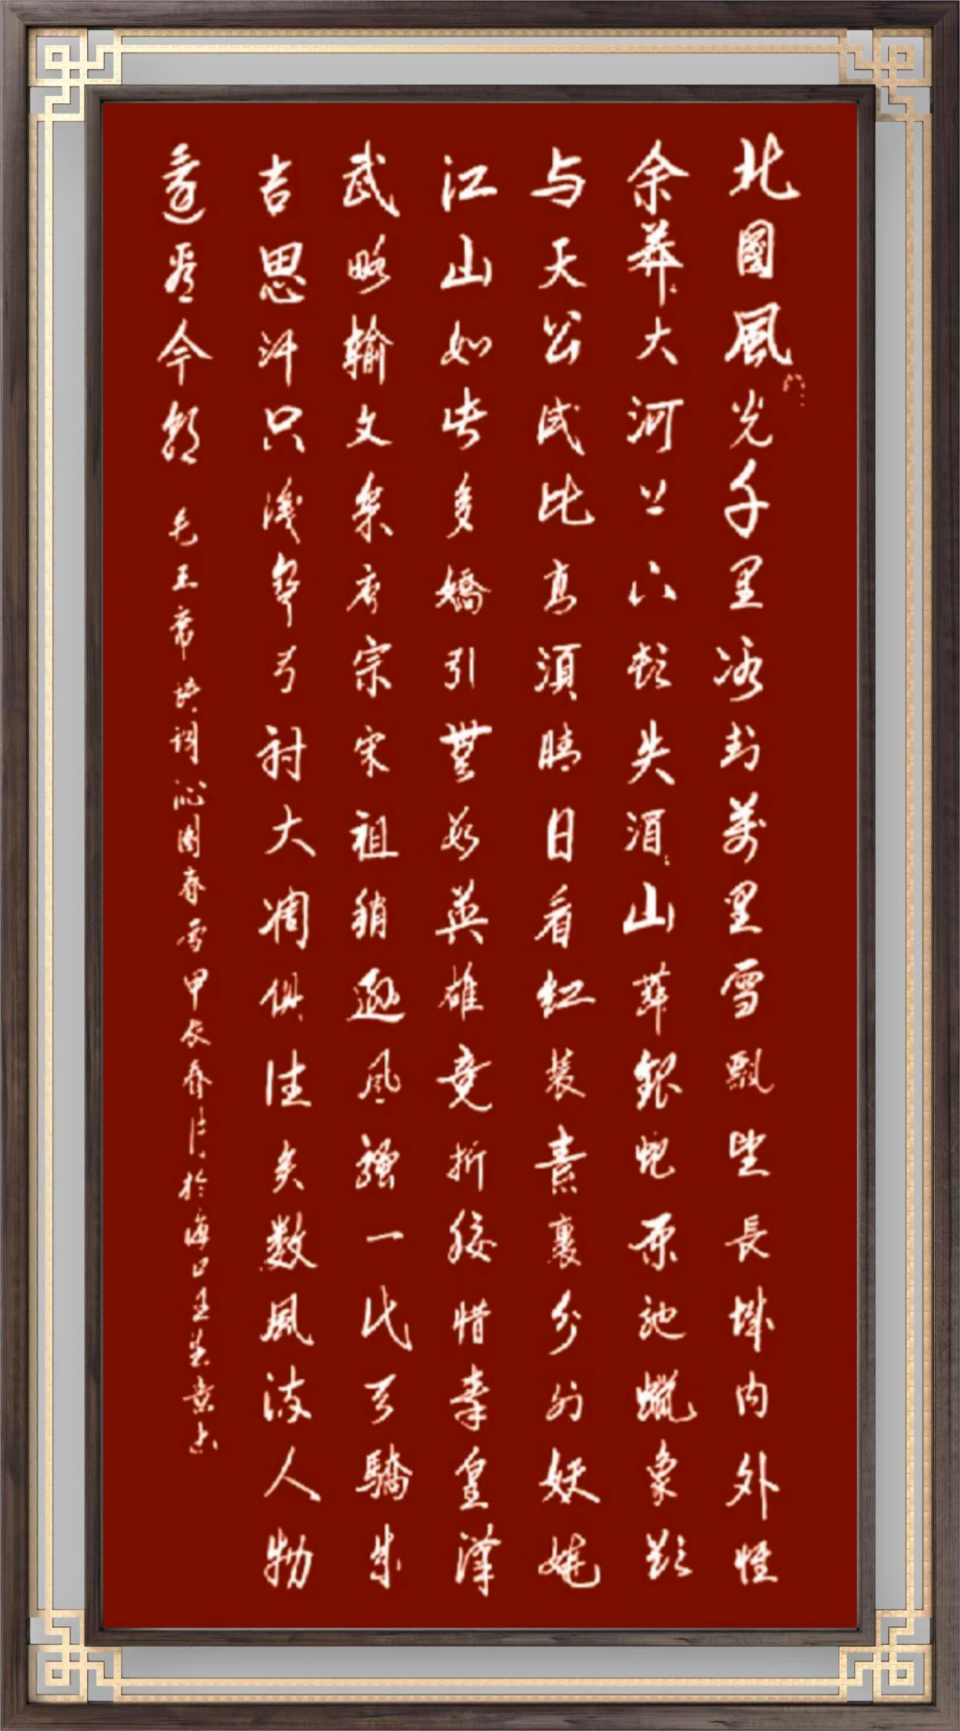 北國風光千里冰封萬里雪飄望長城内外惟
余莽々大河上下頓失滔々山舞銀蛇原馳蠟象欲
与天公试比高須晴日看紅装素裹分外妖娆
江山如此多嬌引無数英雄竞折腰惜秦皇漢
武略輸文采唐宗宋祖稍遜風骚一代天驕成
吉思汗只識彎弓射大雕俱往矣数風流人物
還看今朝
毛主席诗词沁園春雪甲辰春月於海口王